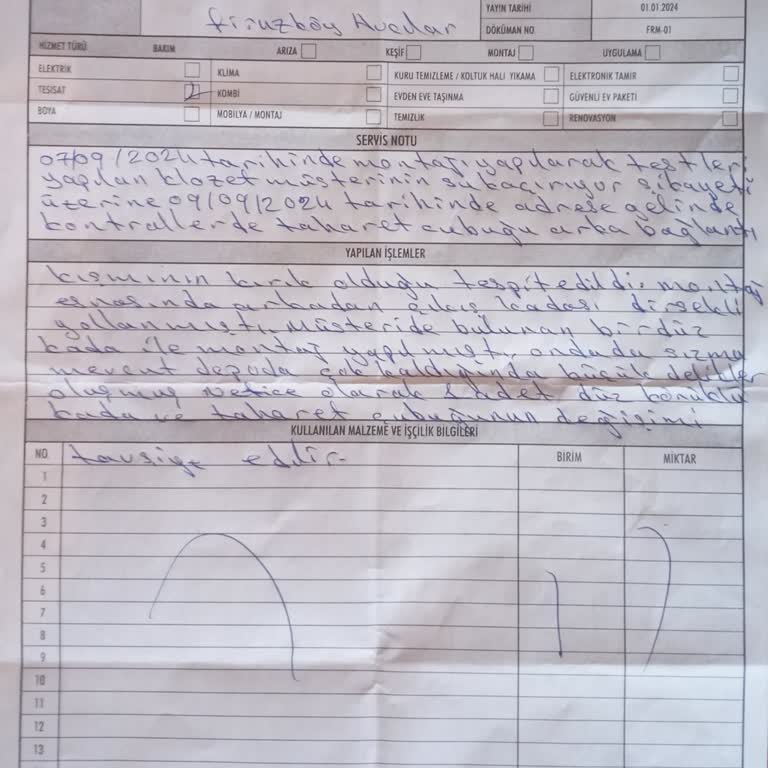 Firuzköy Avcılar
YAYIN TARİHİ 01.01.2024
DÖKÜMAN NO. FRM-01
HİZMET TÜRÜ BAKIM ARIZA KEŞİF MONTAJ UYGULAMA
ELEKTRİK KLİMA KURU TEMİZLEME / KOLTUK HALI YIKAMA ELEKTRONİK TAMİR
TESİSAT KOMBİ EVDEN EVE TAŞINMA GÜVENLİ EV PAKETİ
BOYA MOBİLYA / MONTAJ TEMİZLİK RENOVASYON
SERVİS NOTU
07/09/2024 tarihinde montajı yapılarak testleri
yapılan klozet müşterinin su kaçırıyor şikayeti
üzerine 09/09/2024 tarihinde adrese gelindi
kontrollerde taharet çubuğu arka bağlantı
YAPILAN İŞLEMLER
kısmının kırık olduğu tespit edildi. montaj
esnasında arkadan çıkış kadası dirsekli
yollanmıştı. Müşteride bulunan bir düz
kada ile montaj yapılmıştı. onda da sızma
mevcut depoda çok kaldığında küçük delikler
oluşmuş Netice olarak 1 adet düz körüklü
kada ve taharet çubuğunun değişimi
KULLANILAN MALZEME VE İŞÇİLİK BİLGİLERİ
NO. tavsiye edilir. BİRİM MİKTAR
1
2
3
4
5
6
7
8
9
10
11
12
13